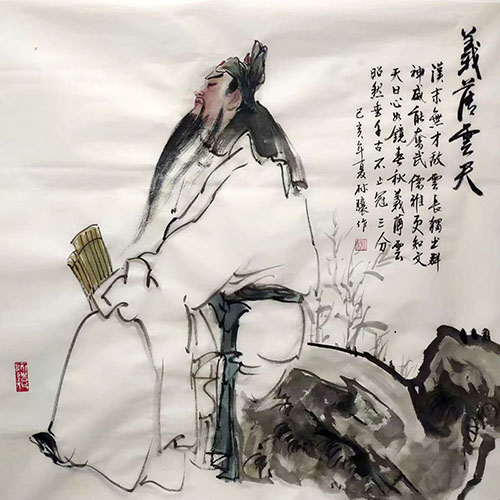 義薄雲天
漢末無才敵雲長獨出群
神威能奮武儒雅更知文
天日心如鏡春秋義薄雲
昭然垂千古不止冠三分
己亥年夏孙驤作